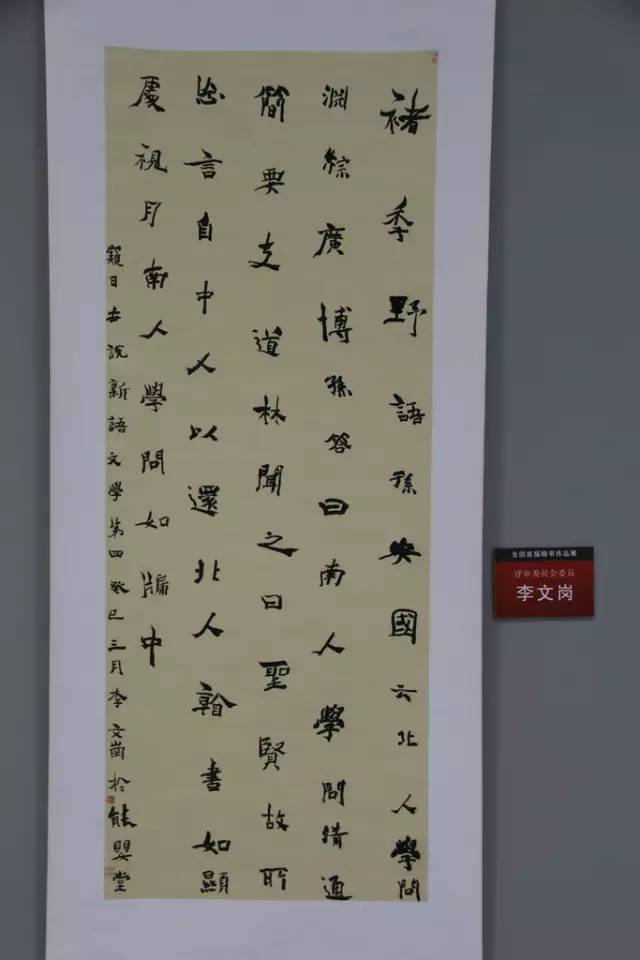 褚季野語孫安國云北人學問
淵綜廣博孫答曰南人學問精通
簡要支道林聞之曰聖賢故所
忘言自中人以還北人看書如顯
處視月南人學問如牖中
窺日世說新語文學第四癸巳三月李文崗於能嬰堂
全国首届楷书作品展
评审委员会委员
李文岗